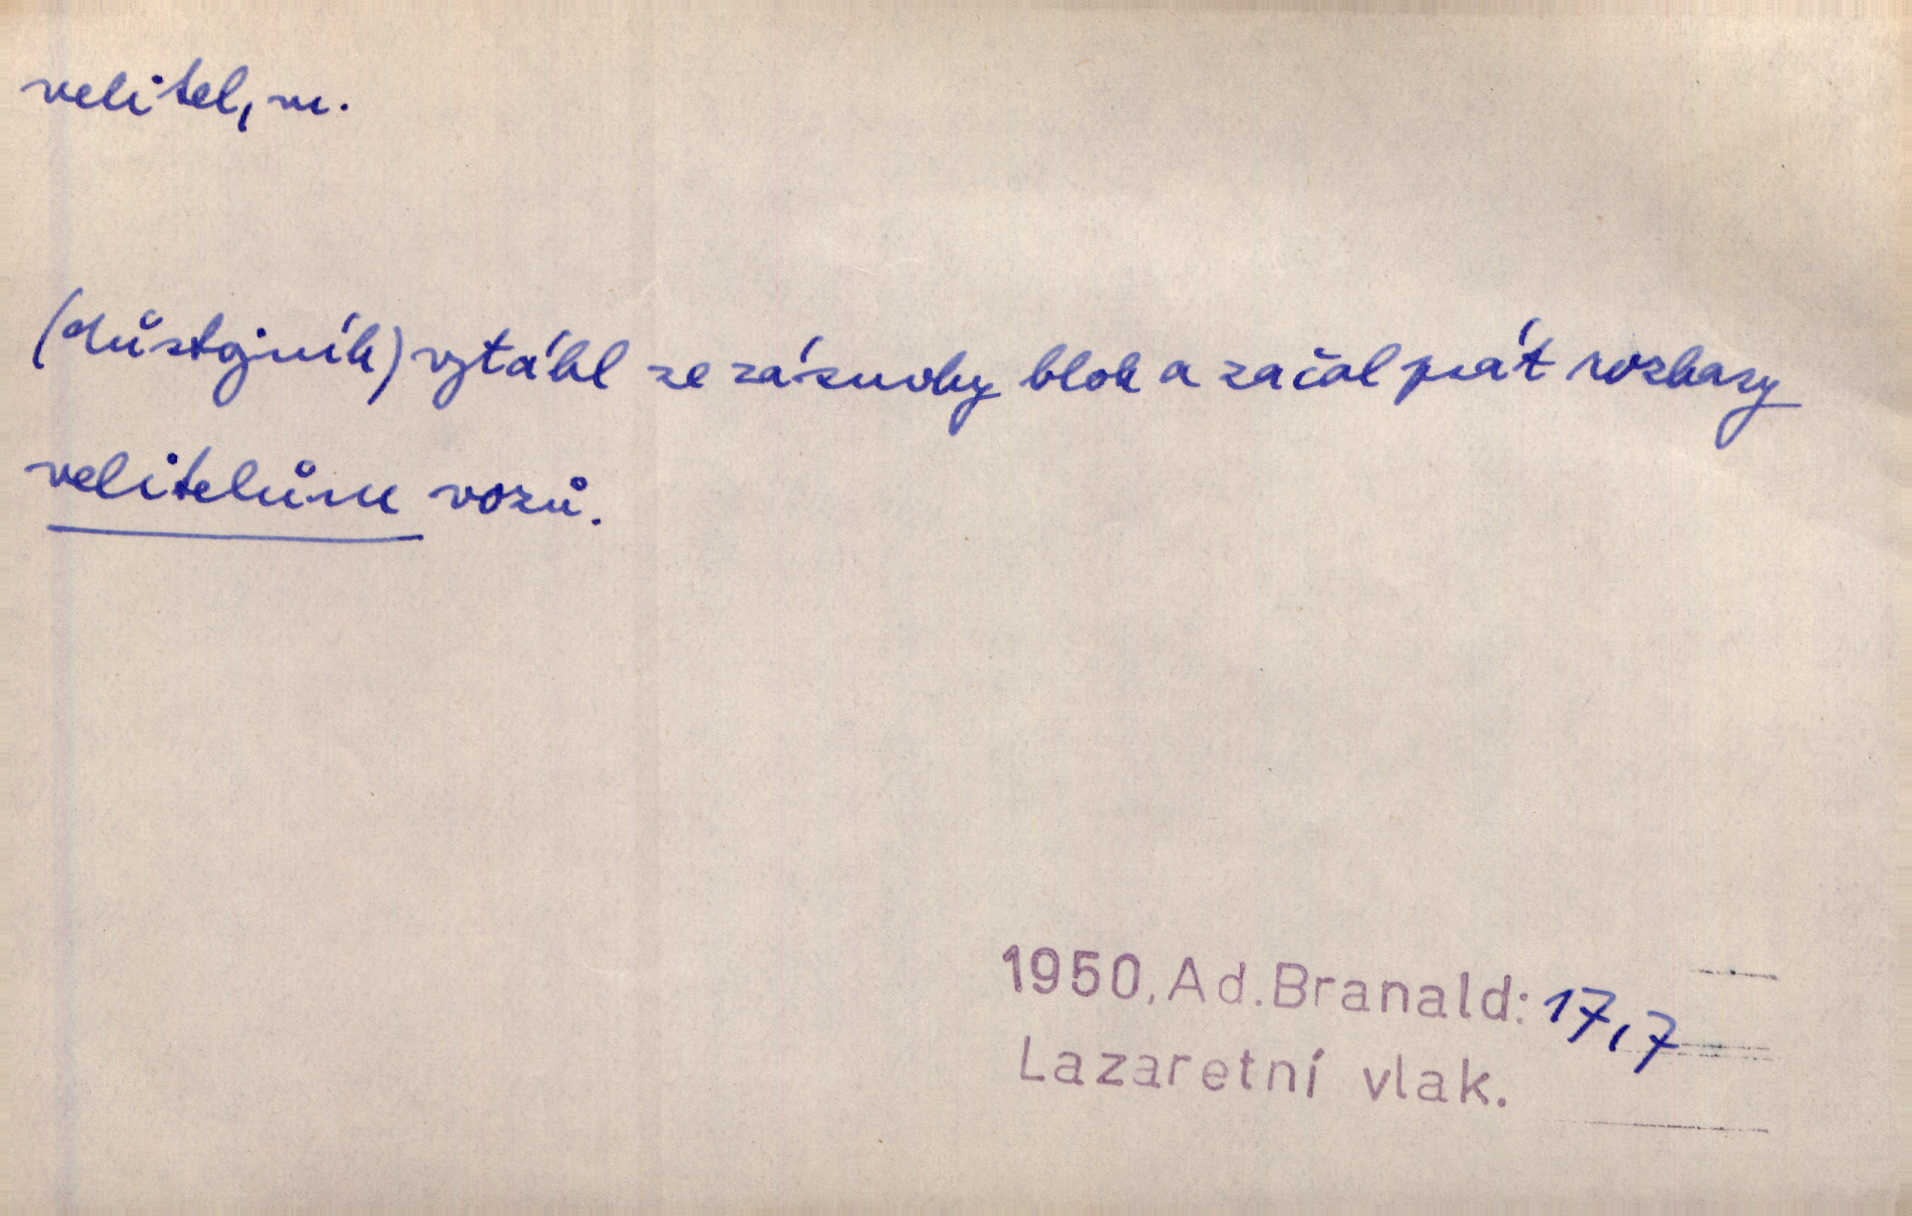 velitel, m.
(důstojník) vytáhl ze zásuvky blok a začal psát rozkazy
velitelům vozů.
1950, Ad. Branald: 17,7
Lazaretní vlak.